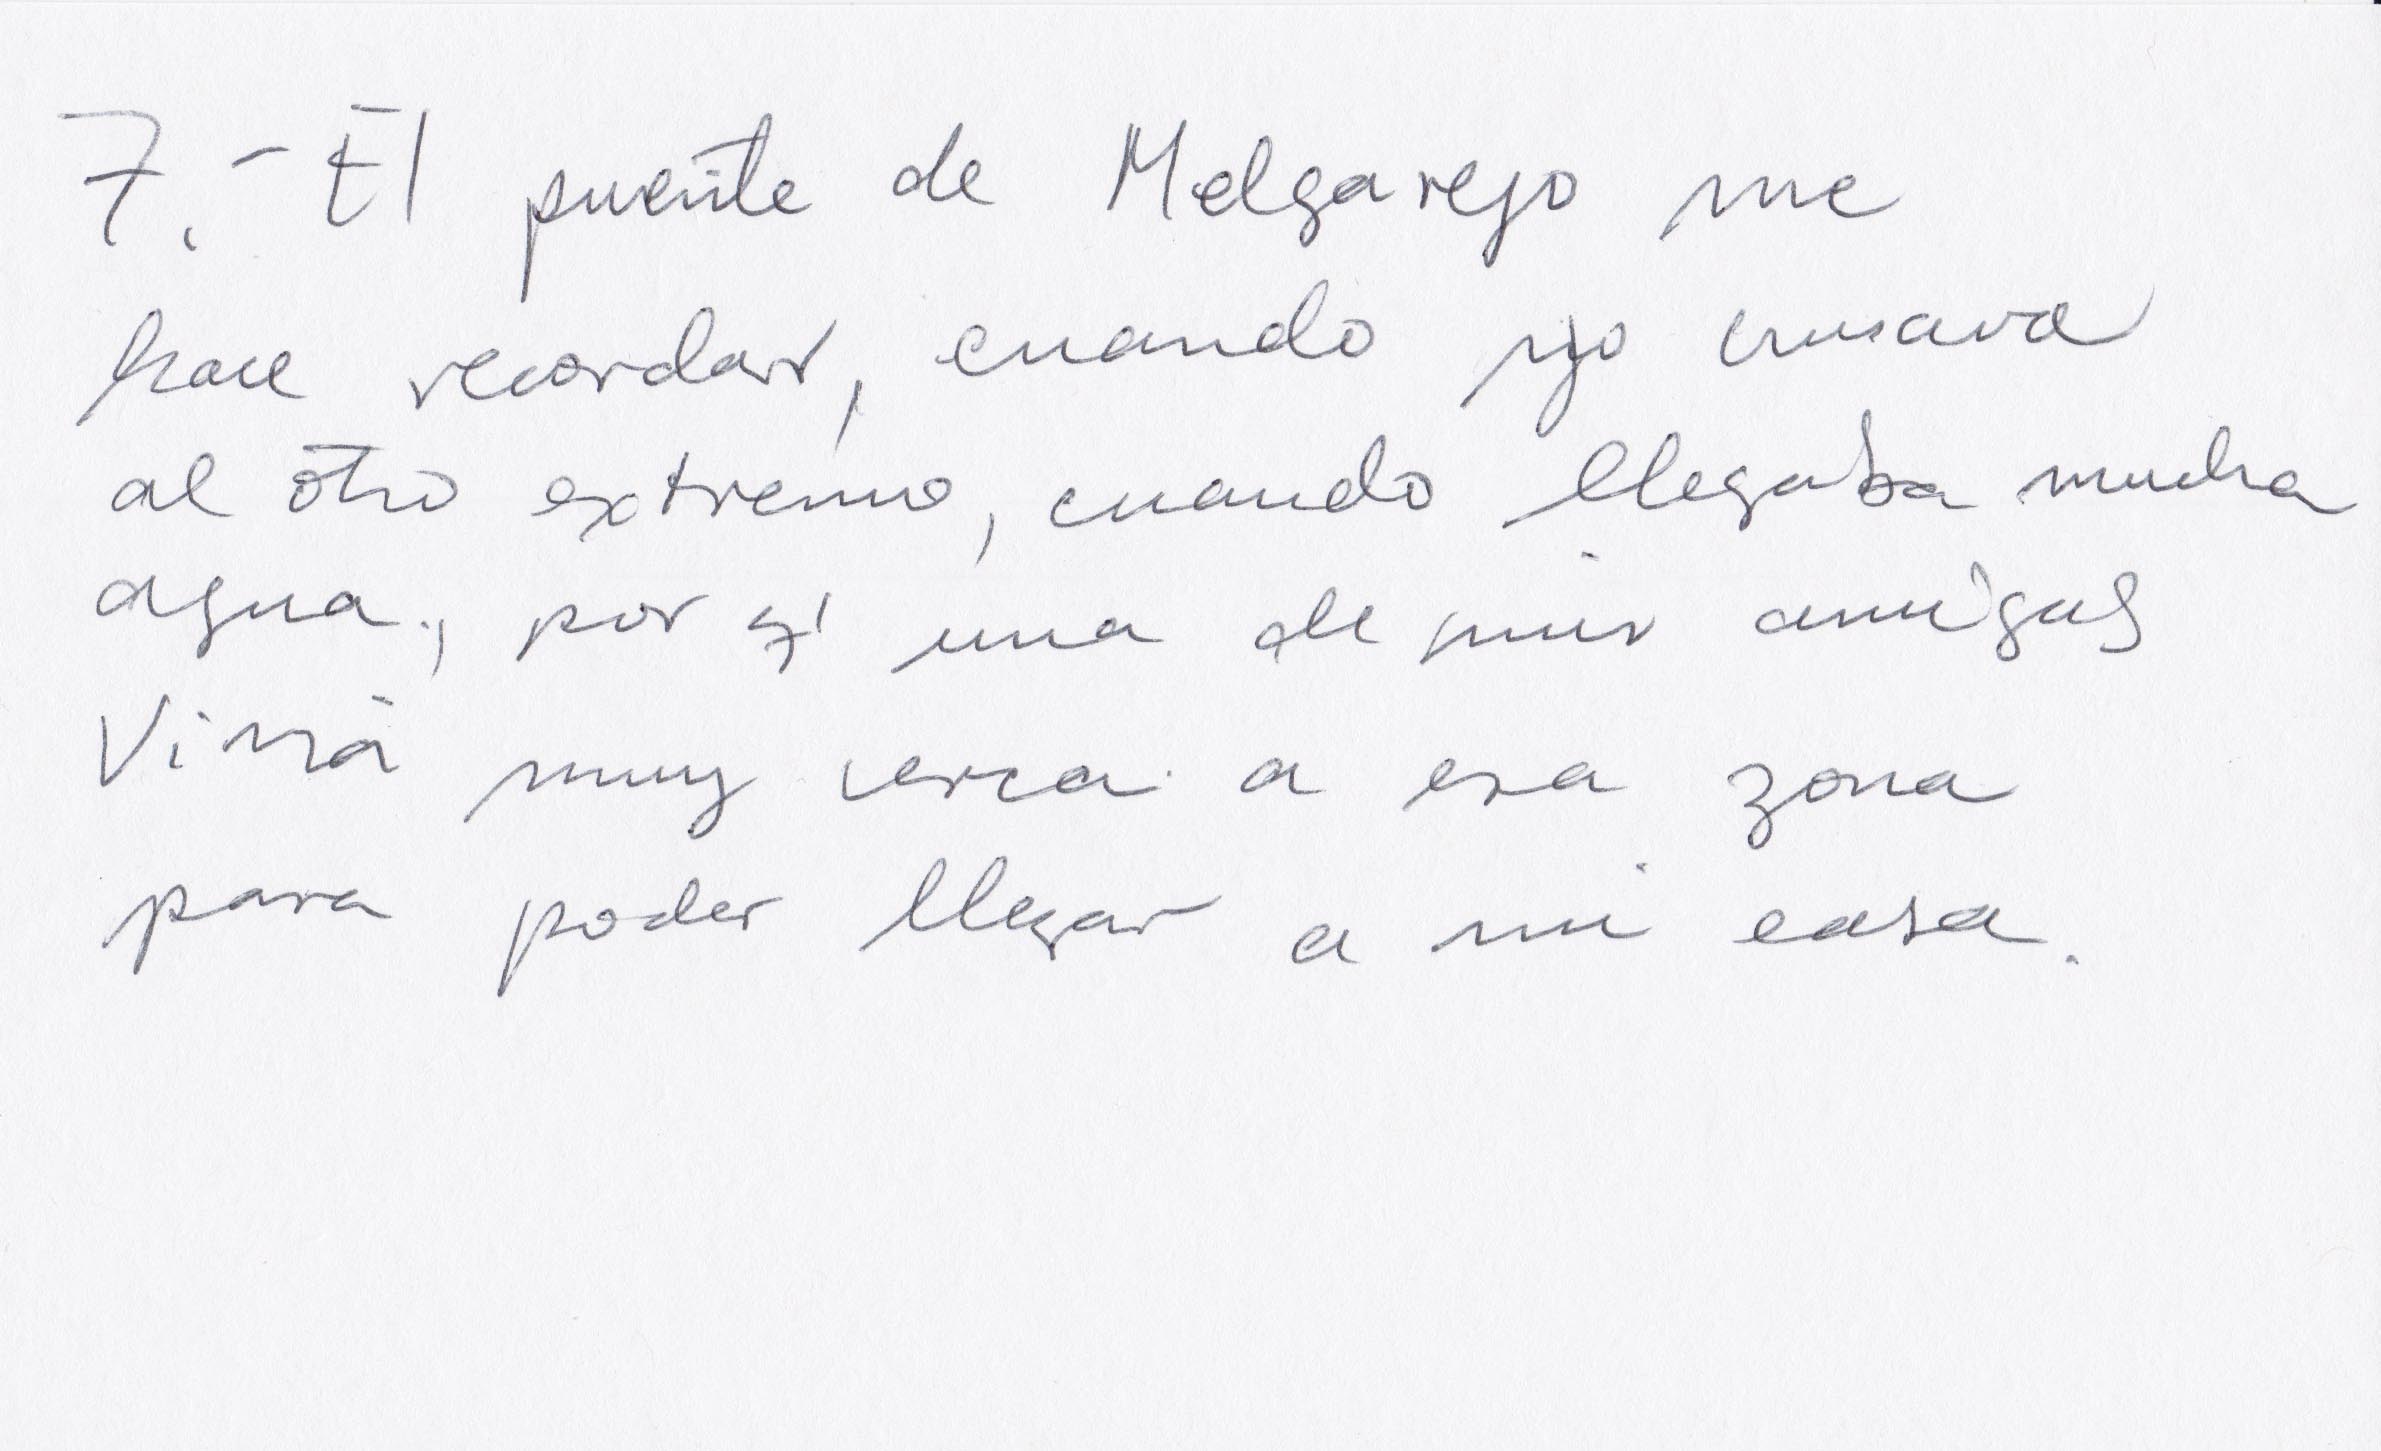 7.- El puente de Melgarejo me
hace recordar, cuando yo crusava
al otro extremo, cuando llegaba mucha
agua., por q' una de mis amigas
Vivia muy cerca a esa zona
para poder llegar a mi casa.